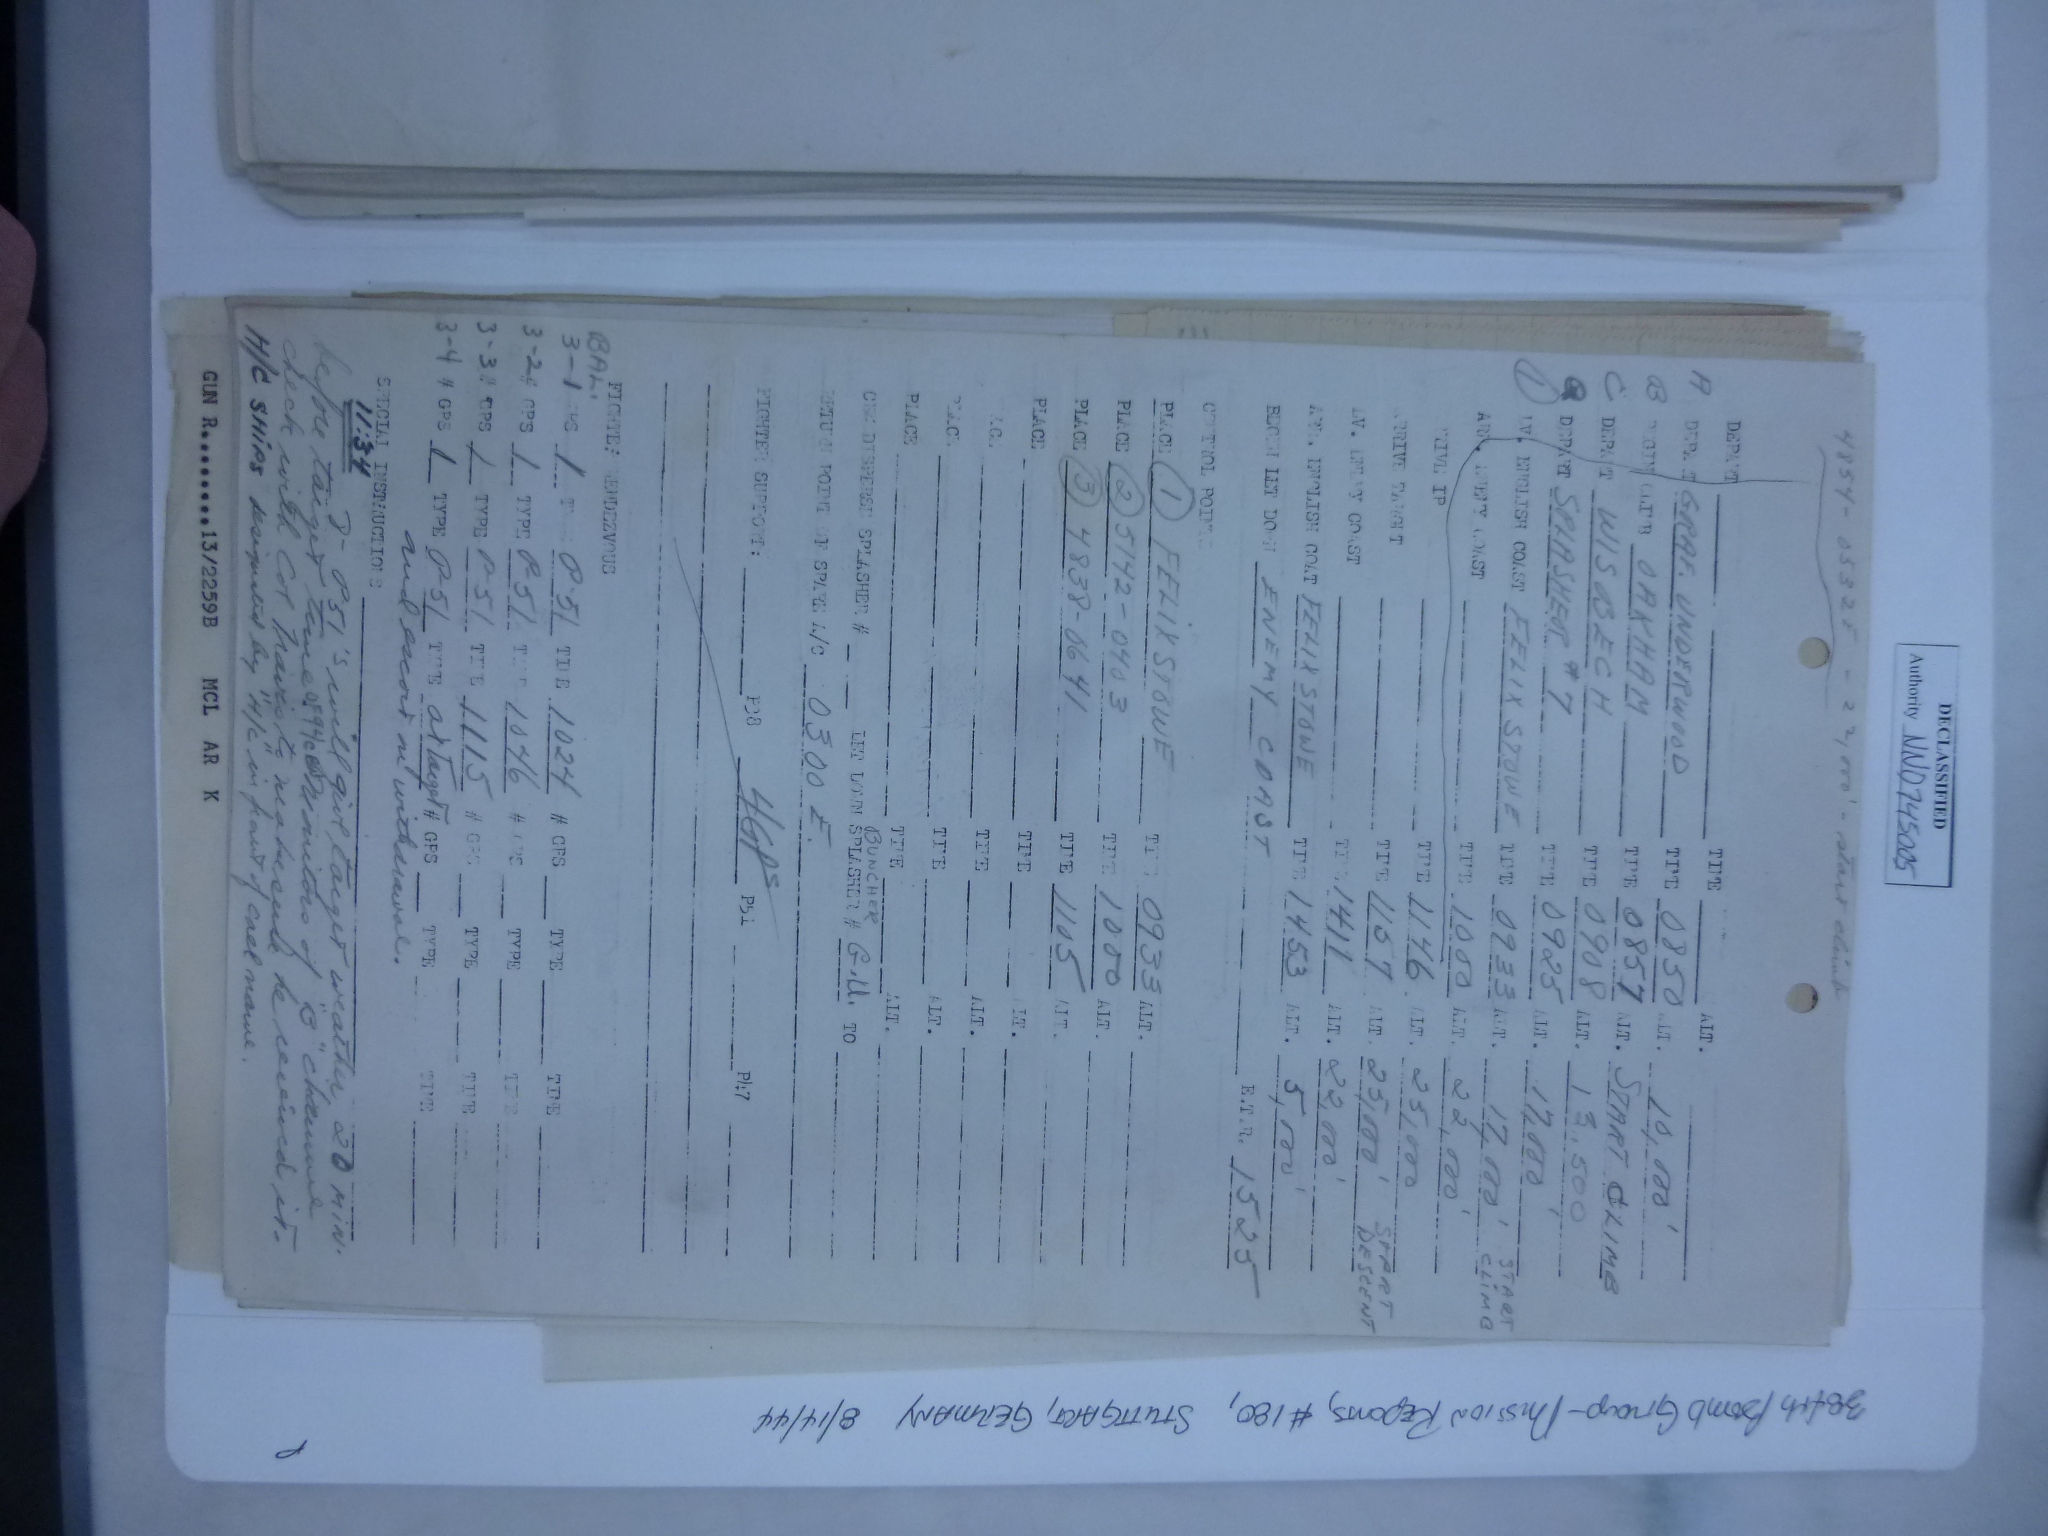 DECLASSIFIED
Authority NND745005
4854-0532E - 22,000' - start climb
DEPART TIME ALT.
A DEPART GRAF. UNDERWOOD TIME 0850 ALT. 10,000'
B OAKHAM TIME 0857 ALT. START CLIMB
C DEPART WISBECH TIME 0908 ALT. 13,500
DEPART SPLASHER #7 TIME 0925 ALT. 17,000'
1 LV. ENGLISH COAST FELIXSTOWE TIME 0933 ALT. 17,000' START CLIMB
ARR. ENEMY COAST TIME 1000 ALT. 22,000'
ARRIVE IP TIME 1146 ALT. 25,000
ARRIVE TARGET TIME 1157 ALT. 25,000' START DESCENT
LV. ENEMY COAST TIME 1411 ALT. 22,000'
ARR. ENGLISH COAST FELIXSTOWE TIME 1453 ALT. 5,500'
BEGIN LET DOWN ENEMY COAST E.T.R. 1525
CONTROL POINTS
PLACE 1 FELIXSTOWE TIME 0933 ALT.
PLACE 2 5142-0403 TIME 1000 ALT.
PLACE 3 4838-0641 TIME 1105 ALT.
PLACE TIME ALT.
TIME ALT.
TIME ALT.
PLACE TIME ALT.
BUNCHER
CAN DISPERSE SPLASHER # LET DOWN SPLASHER # G.H. TO
RETURN POINT OF SPARE A/C 0300 E.
FIGHTER SUPPORT: P38 4 GPS P51 P47
FIGHTER RENDEZVOUS
BAL:
3-1 # GPS 1 TYPE P-51 TIME 1024 # GPS TYPE TIME
3-2 # GPS 1 TYPE P-51 TIME 1046 # GPS TYPE TIME
3-3 # GPS 1 TYPE P-51 TIME 1115 # GPS TYPE TIME
3-4 # GPS 1 TYPE P-51 TIME at target # GPS TYPE TIME
and escort on withdrawal.
SPECIAL INSTRUCTIONS:
11:34
P-51's will give target weather 20 min.
before target time on "B" channel
check with
H/C SHIPS designated by "H/C" in front of call name.
GUN R........13/2259B MCL AR K
384th Bomb Group - Mission Reports, #180, STUTTGART, GERMANY 8/14/44
P